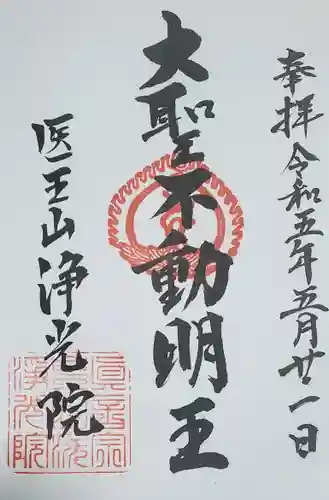 奉拝 令和五年五月廿一日
大聖不動明王
医王山 浄光院